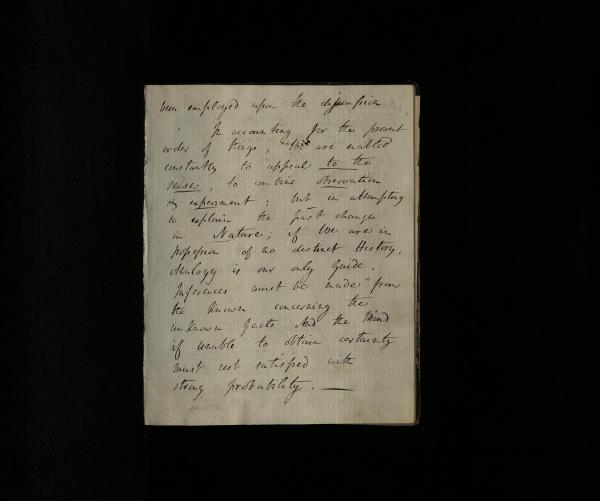 been employed upon the discussion
In accounting for the present
order of things, We are enabled
constantly to appeal to the
senses, to continue observation
& experiment; but in attempting
to explain the past changes
in Nature; if We are in
possession of no distinct History,
Analogy is our only Guide,
Inferences must be made from
the known concerning the
unknown facts. And the Mind
if unable to obtain certainty
must rest satisfied with
strong probability. —